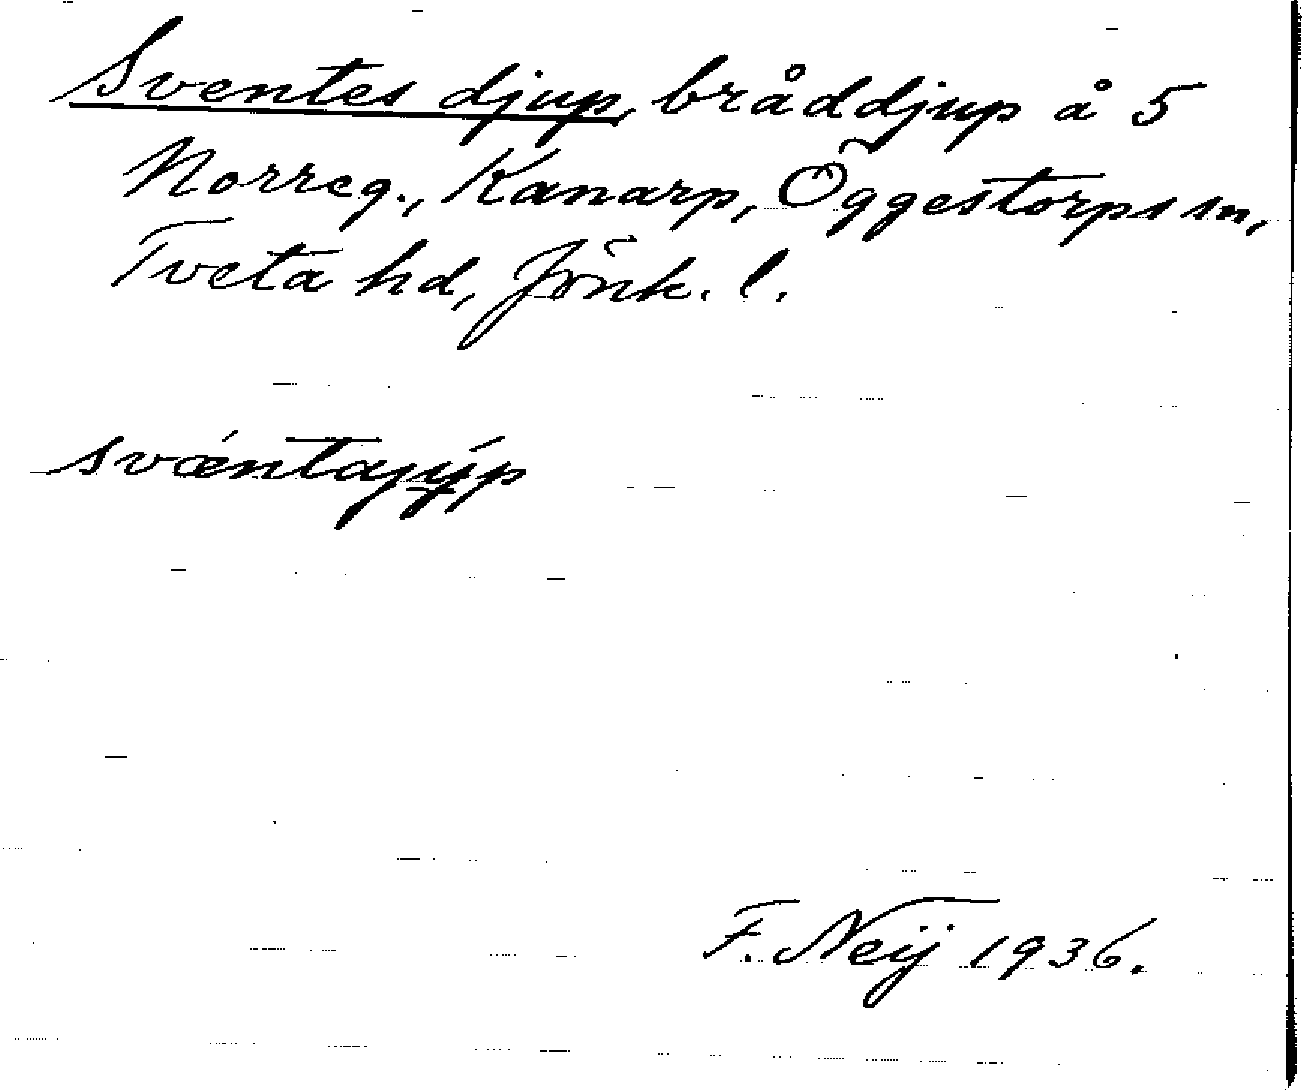 Sventes djup, bråddjup å 5
Norreg., Kanarp, Öggestorps sn,
Tveta hd, Jönk. l.
F. Neij 1936.